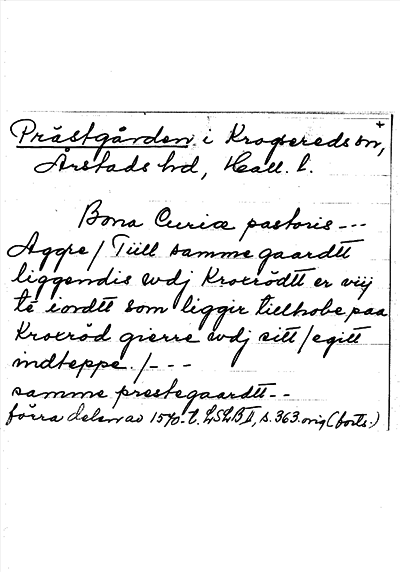 Prästgården i Krogsereds sn,
Årstads hd, Hall. l.
Bona Curiæ pastoris ---
Aggre / Tiill samme gaardtt
liggendis wdj Kroxrödtt er viij
te iordtt som liggir tielhobe paa
Kroxröd gierre wdj sitt / egitt
indteppe. / - - -
samme prestegaardtt --
förra delen av 1570-t. LSLB II, s. 363. orig (forts.)